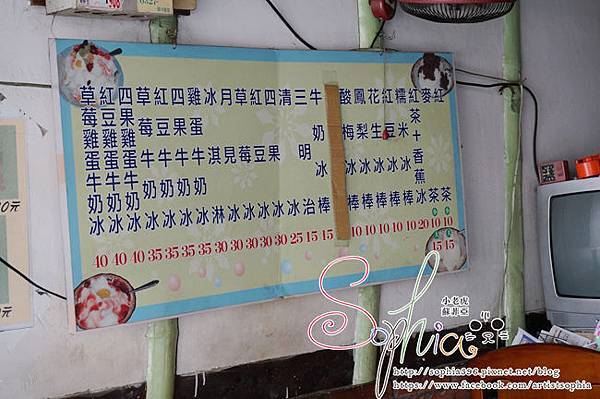 草莓雞蛋牛奶冰 40
紅豆雞蛋牛奶冰 40
四果雞蛋牛奶冰 40
草莓牛奶冰 35
紅豆牛奶冰 35
四果牛奶冰 35
雞蛋牛奶冰 35
冰淇淋 30
月見冰 30
草莓冰 30
紅豆冰 30
四果冰 30
清冰 25
三明治 15
牛奶冰棒 15
酸梅冰棒 10
鳳梨冰棒 10
花生冰棒 10
紅豆冰棒 10
糯米冰棒 10
紅茶+香蕉冰 20
麥茶 10 15
紅茶 10 15
小老虎
蘇菲亞
Sophia
http://sophia396.pixnet.net/blog
https://www.facebook.com/artistsophia